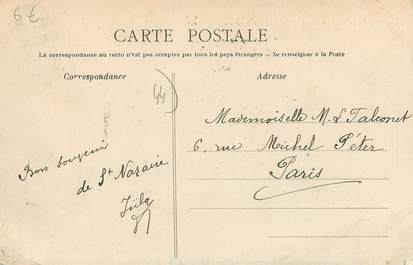 6€
CARTE POSTALE
La correspondance au recto n'est pas acceptée par tous les pays étrangers — Se renseigner à la Poste
Correspondance
Adresse
44
Mademoiselle M. L Talconet
6. rue Michel Péter
Paris
Bon souvenir
de St Nazaire